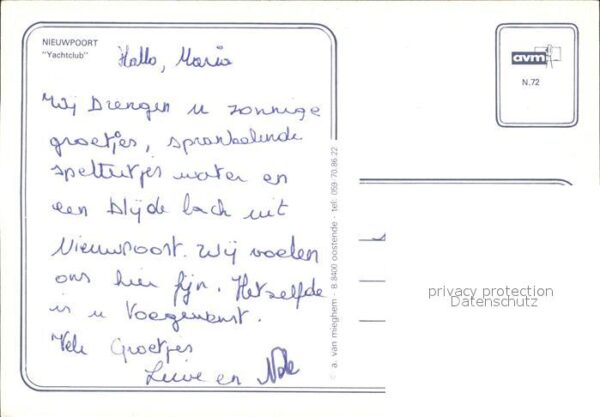 NIEUWPOORT
"Yachtclub"
Hallo, Maria
Wij Brengen u zonnige
groetjes, sprankelende
spettertjes water en
een Blijde lach uit
Nieuwpoort. Wij voelen
ons hier fijn. Hetzelfde
is u Toegewenst.
Vele Groetjes
Lieve en
© a. van mieghem - B 8400 oostende - tel. 059 70.86.22
avm
N.72
privacy protection
Datenschutz